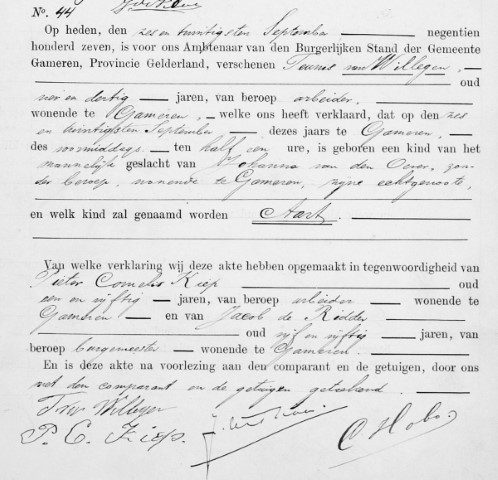 No. 44
Op heden, den zes en twintigsten September negentien
honderd zeven, is voor ons Ambtenaar van den Burgerlijken Stand der Gemeente
Gameren, Provincie Gelderland, verschenen Teunis van Willegen,
oud
vier en dertig jaren, van beroep arbeider,
wonende te Gameren, welke ons heeft verklaard, dat op den zes
en twintigsten September dezes jaars te Gameren,
des voormiddags ten half een ure, is geboren een kind van het
mannelijk geslacht van Johanna van den Oever, zon-
der beroep, wonende te Gameren, zijne echtgenoote,
en welk kind zal genaamd worden Aart.
Van welke verklaring wij deze akte hebben opgemaakt in tegenwoordigheid van
Pieter Cornelis Kiep oud
een en vijftig jaren, van beroep arbeider wonende te
Gameren en van Jacob de Ridder
oud vijf en vijftig jaren, van
beroep burgemeester wonende te Gameren.
En is deze akte na voorlezing aan den comparant en de getuigen, door ons
met den comparant en de getuigen geteekend.
Willegen
P. C. Kiep.